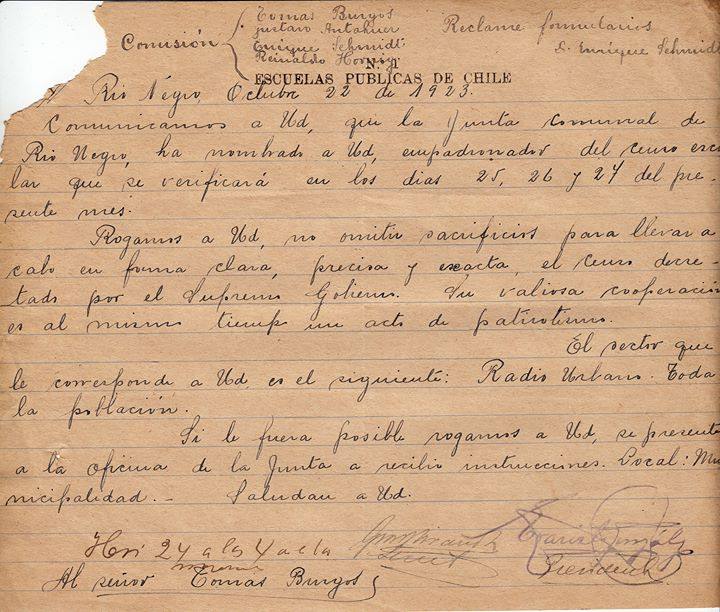 Comisión { Tomas Burgos
Gustavo
Enrique Schmidt
Reinaldo
Reclame formularios
D. Enrique Schmidt
N.º 1
ESCUELAS PUBLICAS DE CHILE
Rio Negro, Octubre 22 de 1923.
Comunicamos a Ud, que la Junta comunal de
Rio Negro, ha nombrado a Ud, empadronador del censo esco
lar que se verificará en los dias 25, 26 y 27 del pre-
sente mes.
Rogamos a Ud, no omitir sacrificios para llevar a
cabo en forma clara, precisa y exacta, el Censo decre-
tado por el Supremo Gobierno. Su valiosa cooperación
es al mismo tiempo un acto de patriotismo.
El sector que
le corresponde a Ud. es el siguiente: Radio Urbano. Toda
la población.
Si le fuera posible rogamos a Ud, se presente
a la oficina de la Junta a recibir instrucciones. Local: Mu
nicipalidad.- Saludan a Ud.
24 a las 4 a
Secret
Presidente
Al señor Tomas Burgos